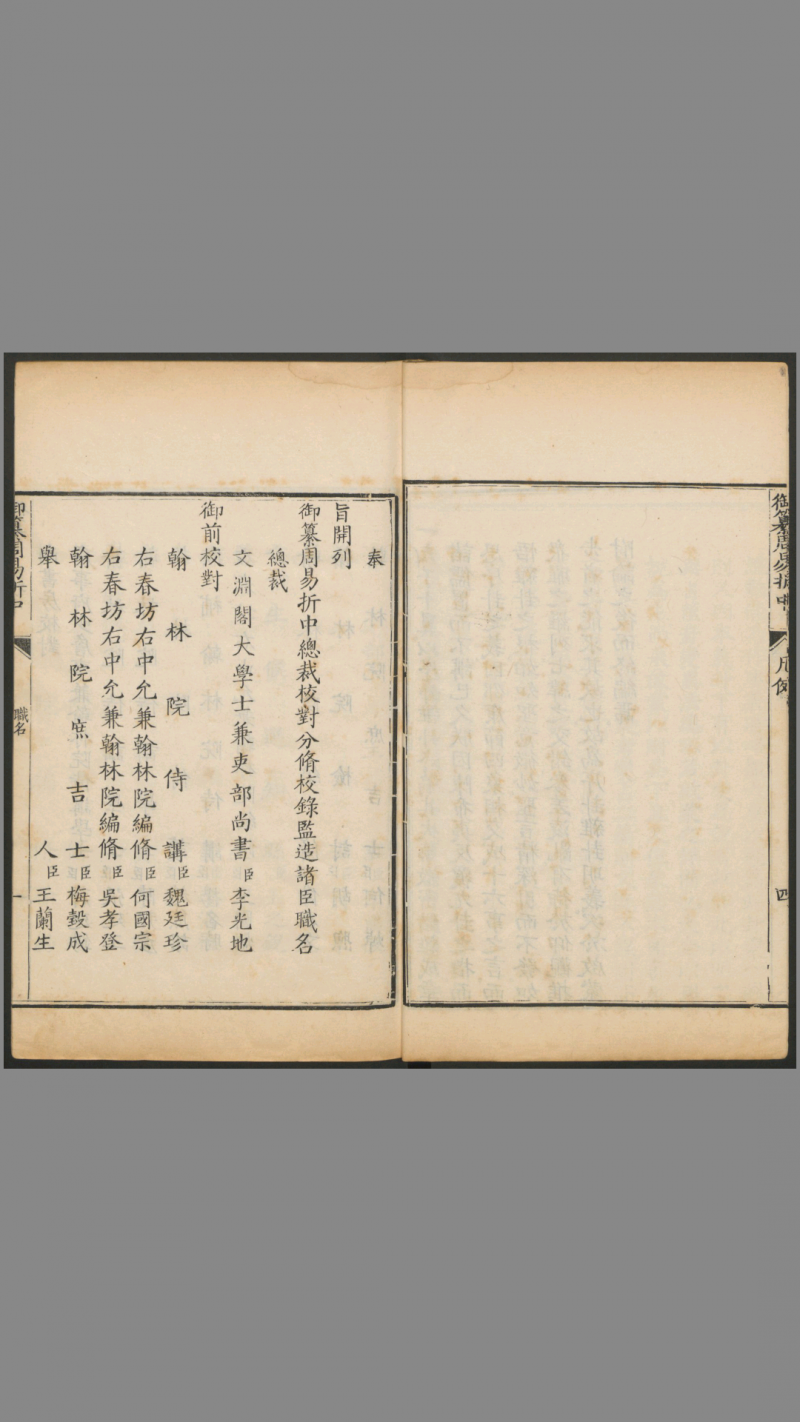 御纂周易折中
凡例
四
奉
旨開列
御纂周易折中總裁校對分脩校錄監造諸臣職名
總裁
文淵閣大學士兼吏部尚書臣李光地
御前校對
翰林院侍講臣魏廷珍
右春坊右中允兼翰林院編脩臣何國宗
右春坊右中允兼翰林院編脩臣吳孝登
翰林院庶吉士臣梅㲄成
舉人臣王蘭生
御纂周易折中
職名
一